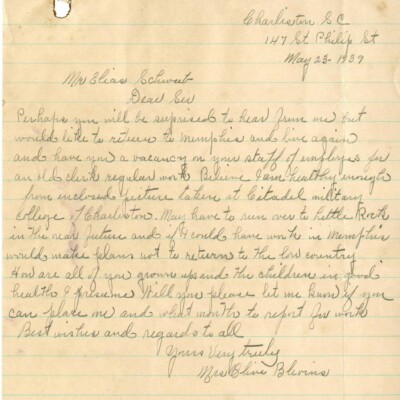 Charliston S C
147 St Philip St
May 23 - 1939
Mr Elias Schwab
Dear Sir
Perhaps you will be surprised to hear from me but
would like to return to Memphis and live again
and have you a vacancy on your staff of employes for
an old clerk regular work Believe I am healthy enough
from inclosed picture taken at Citadel military
College of Charleston. May have to run over to Little Rock
in the near future and if I could have work in Memphis
would make plans not to return to the low country
How are all of you grown ups and the children in good
health I presume Will you please let me know if you
can place me and what months to report for work
Best wishes and regards to all
Yours Very truly
Mrs Blevins